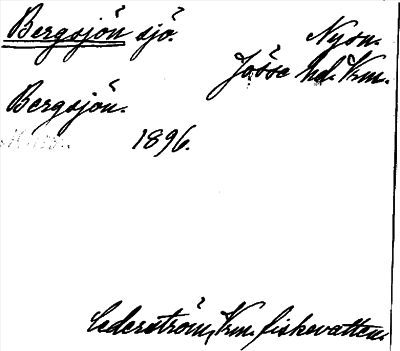 Bergsjön sjö. Nysn.
Jösse hd. Vrm.
Bergsjön.
1896.
Cederström, Vrm. fiskevatten.